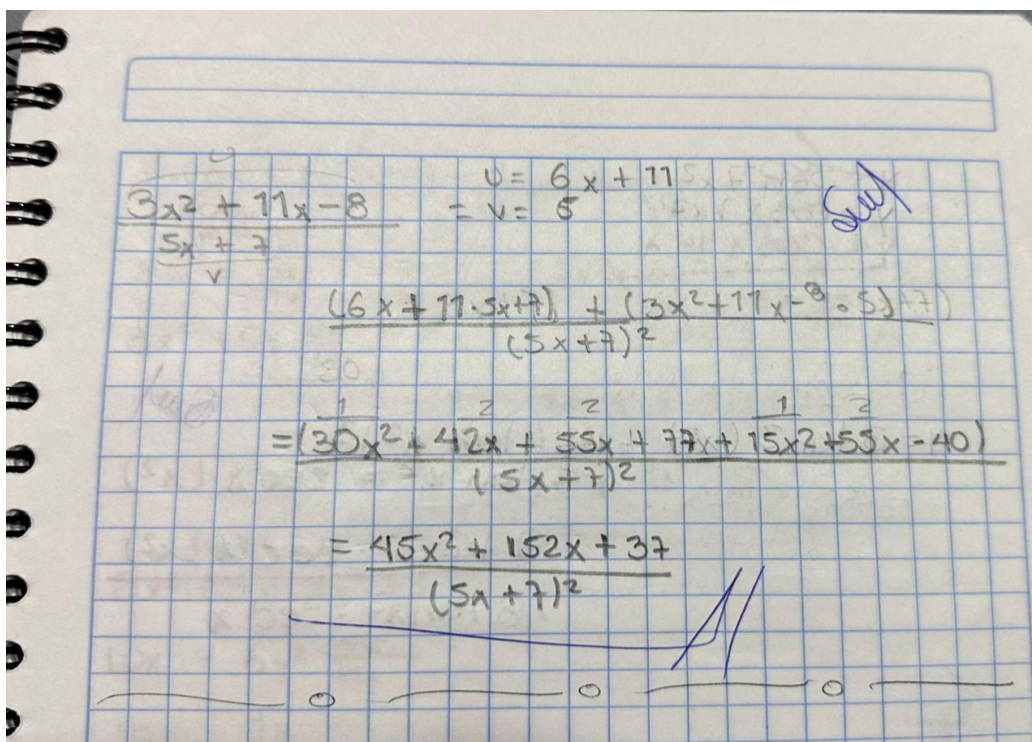 U
3x² + 11x - 8
5x + 7
V
U = 6x + 11
= V = 5
(6x + 11 · 5x+7) + (3x² + 11x - 8 · 5)
(5x+7)²
1 2 2 1 2
= (30x² + 42x + 55x + 77 + 15x² + 55x - 40)
(5x+7)²
= 45x² + 152x + 37
(5x+7)²